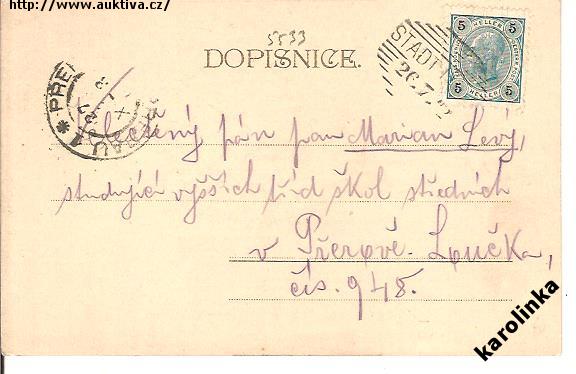 http://www.auktiva.cz/
5533
DOPISNICE.
STADT
26.7.
5 HELLER 5
5 HELLER 5
Slečený pán pan Marian Levý,
studující vyšších tříd škol středních
v Přerově-Loučka,
čís. 948.
karolinka